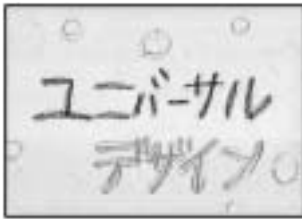 ユニバーサル
デザイン